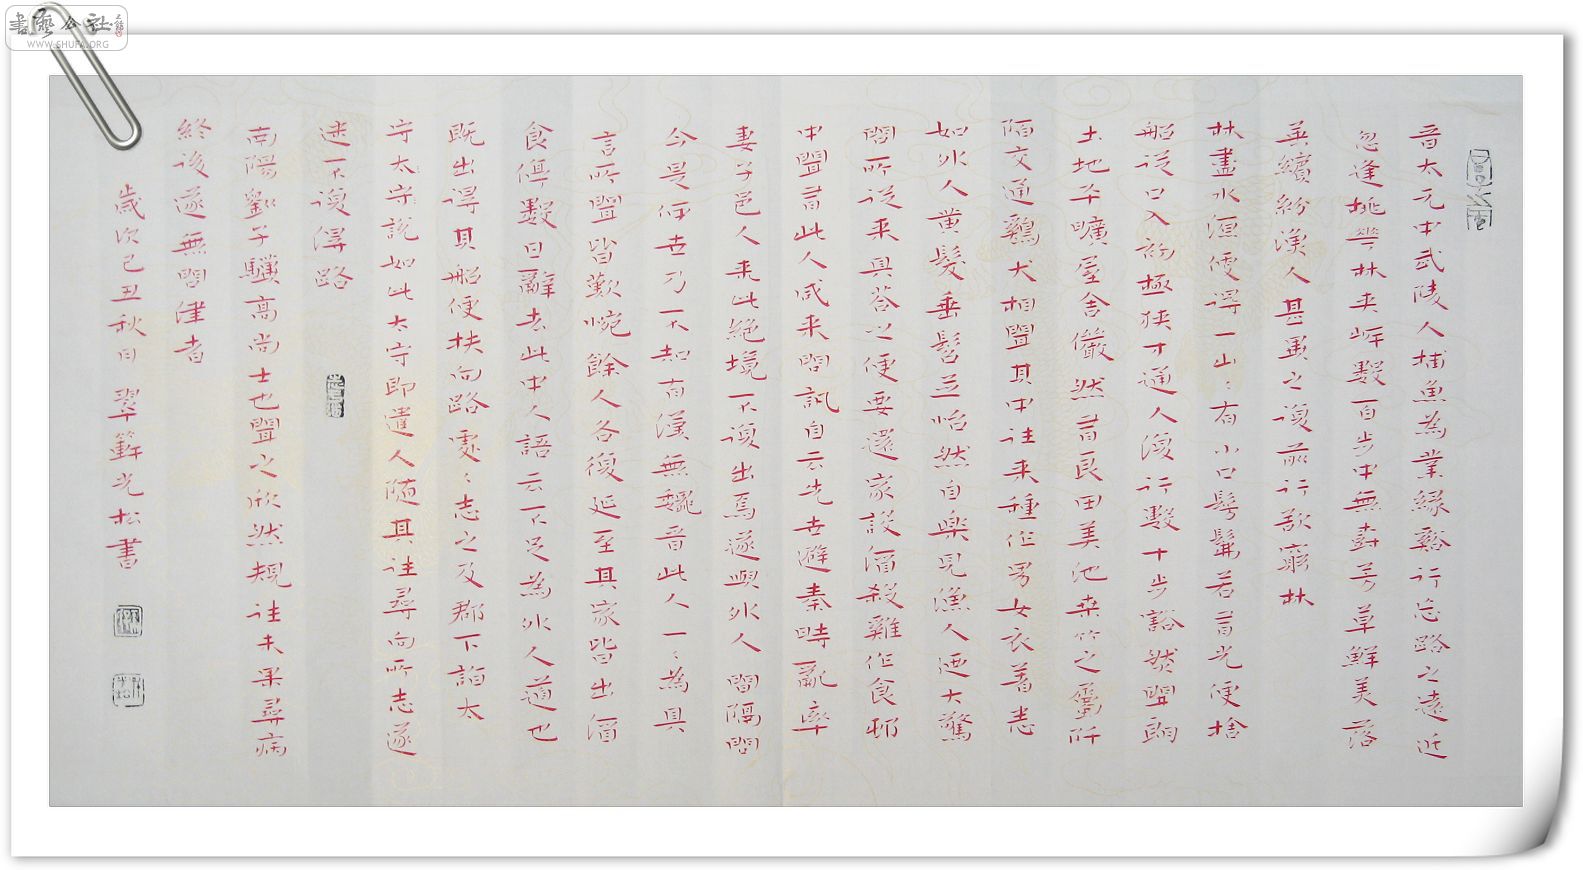 晉太元中武陵人捕魚為業緣谿行忘路之遠近
忽逢桃華林夾岸數百步中無芳草鮮美落
英繽紛漁人甚異之復前行欲窮林
林盡水源便得一山〻有小口髣髴若有光便捨
船從口入初極狹才通人復行數十步豁然開朗
土地平曠屋舍儼然有良田美池桑竹之屬阡
陌交通鷄犬相聞其中往来種作男女衣著悉
如外人黃髮垂髫並怡然自樂見漁人迺大驚
問所從来具荅之便要還家設酒殺雞作食邨
中聞有此人咸来問訊自云先世避秦時亂率
妻子邑人来此絕境不復出焉遂與外人間隔問
今是何世乃不知有漢無魏晉此人一〻為具
言所聞皆歎惋餘人各復延至其家皆出酒
食停數日辭去此中人語云不足為外人道也
既出得其船便扶向路處〻志之及郡下詣太
守太守說如此太守即遣人隨其往尋向所志遂
迷不復得路
南陽劉子驥高尚士也聞之欣然規往未果尋病
終後遂無問津者
歲次己丑秋日 翠竹軒光松書
書藝公社
WWW.SHUFA.ORG